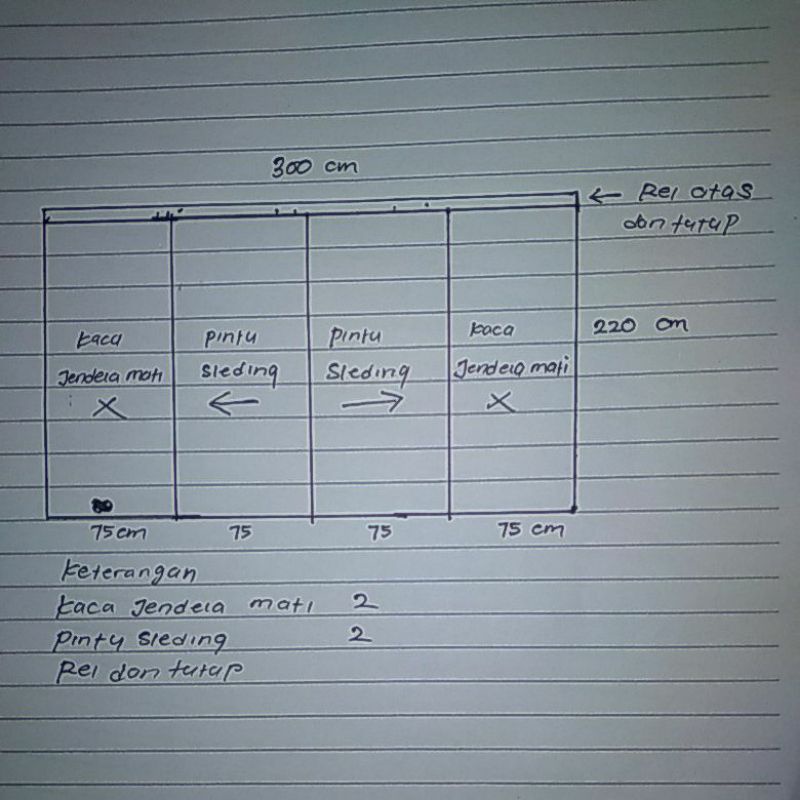 300 cm
← Rel atas
dan tutup
220 cm
kaca
Jendela mati
X
pintu
sleding
←
pintu
sleding
→
kaca
Jendela mati
X
75 cm
75
75
75 cm
keterangan
kaca Jendela mati 2
pintu sleding 2
Rel dan tutup